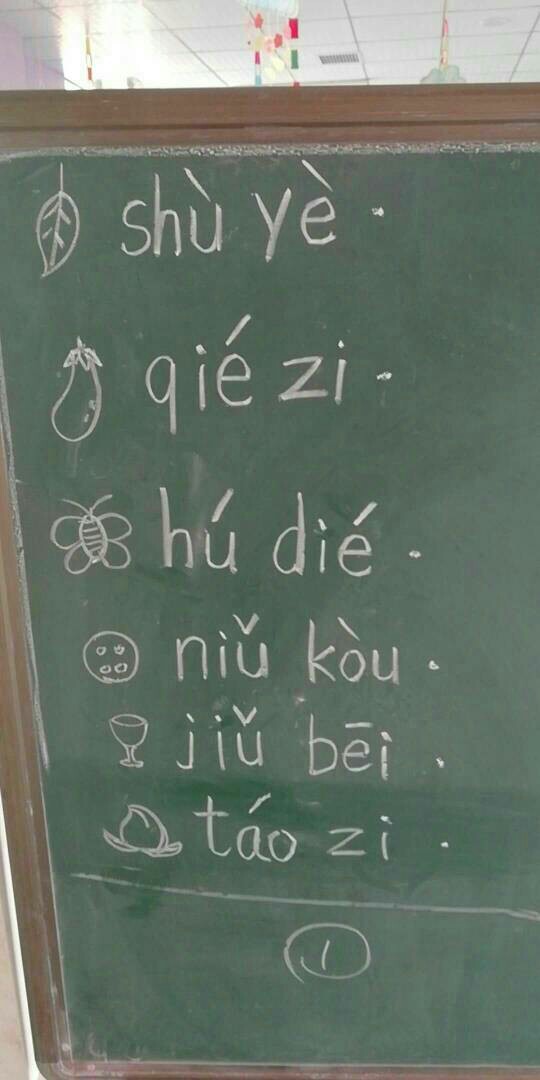 shù yè.
qié zi.
hú dié.
niǔ kòu.
jiǔ bēi.
táo zi.
1